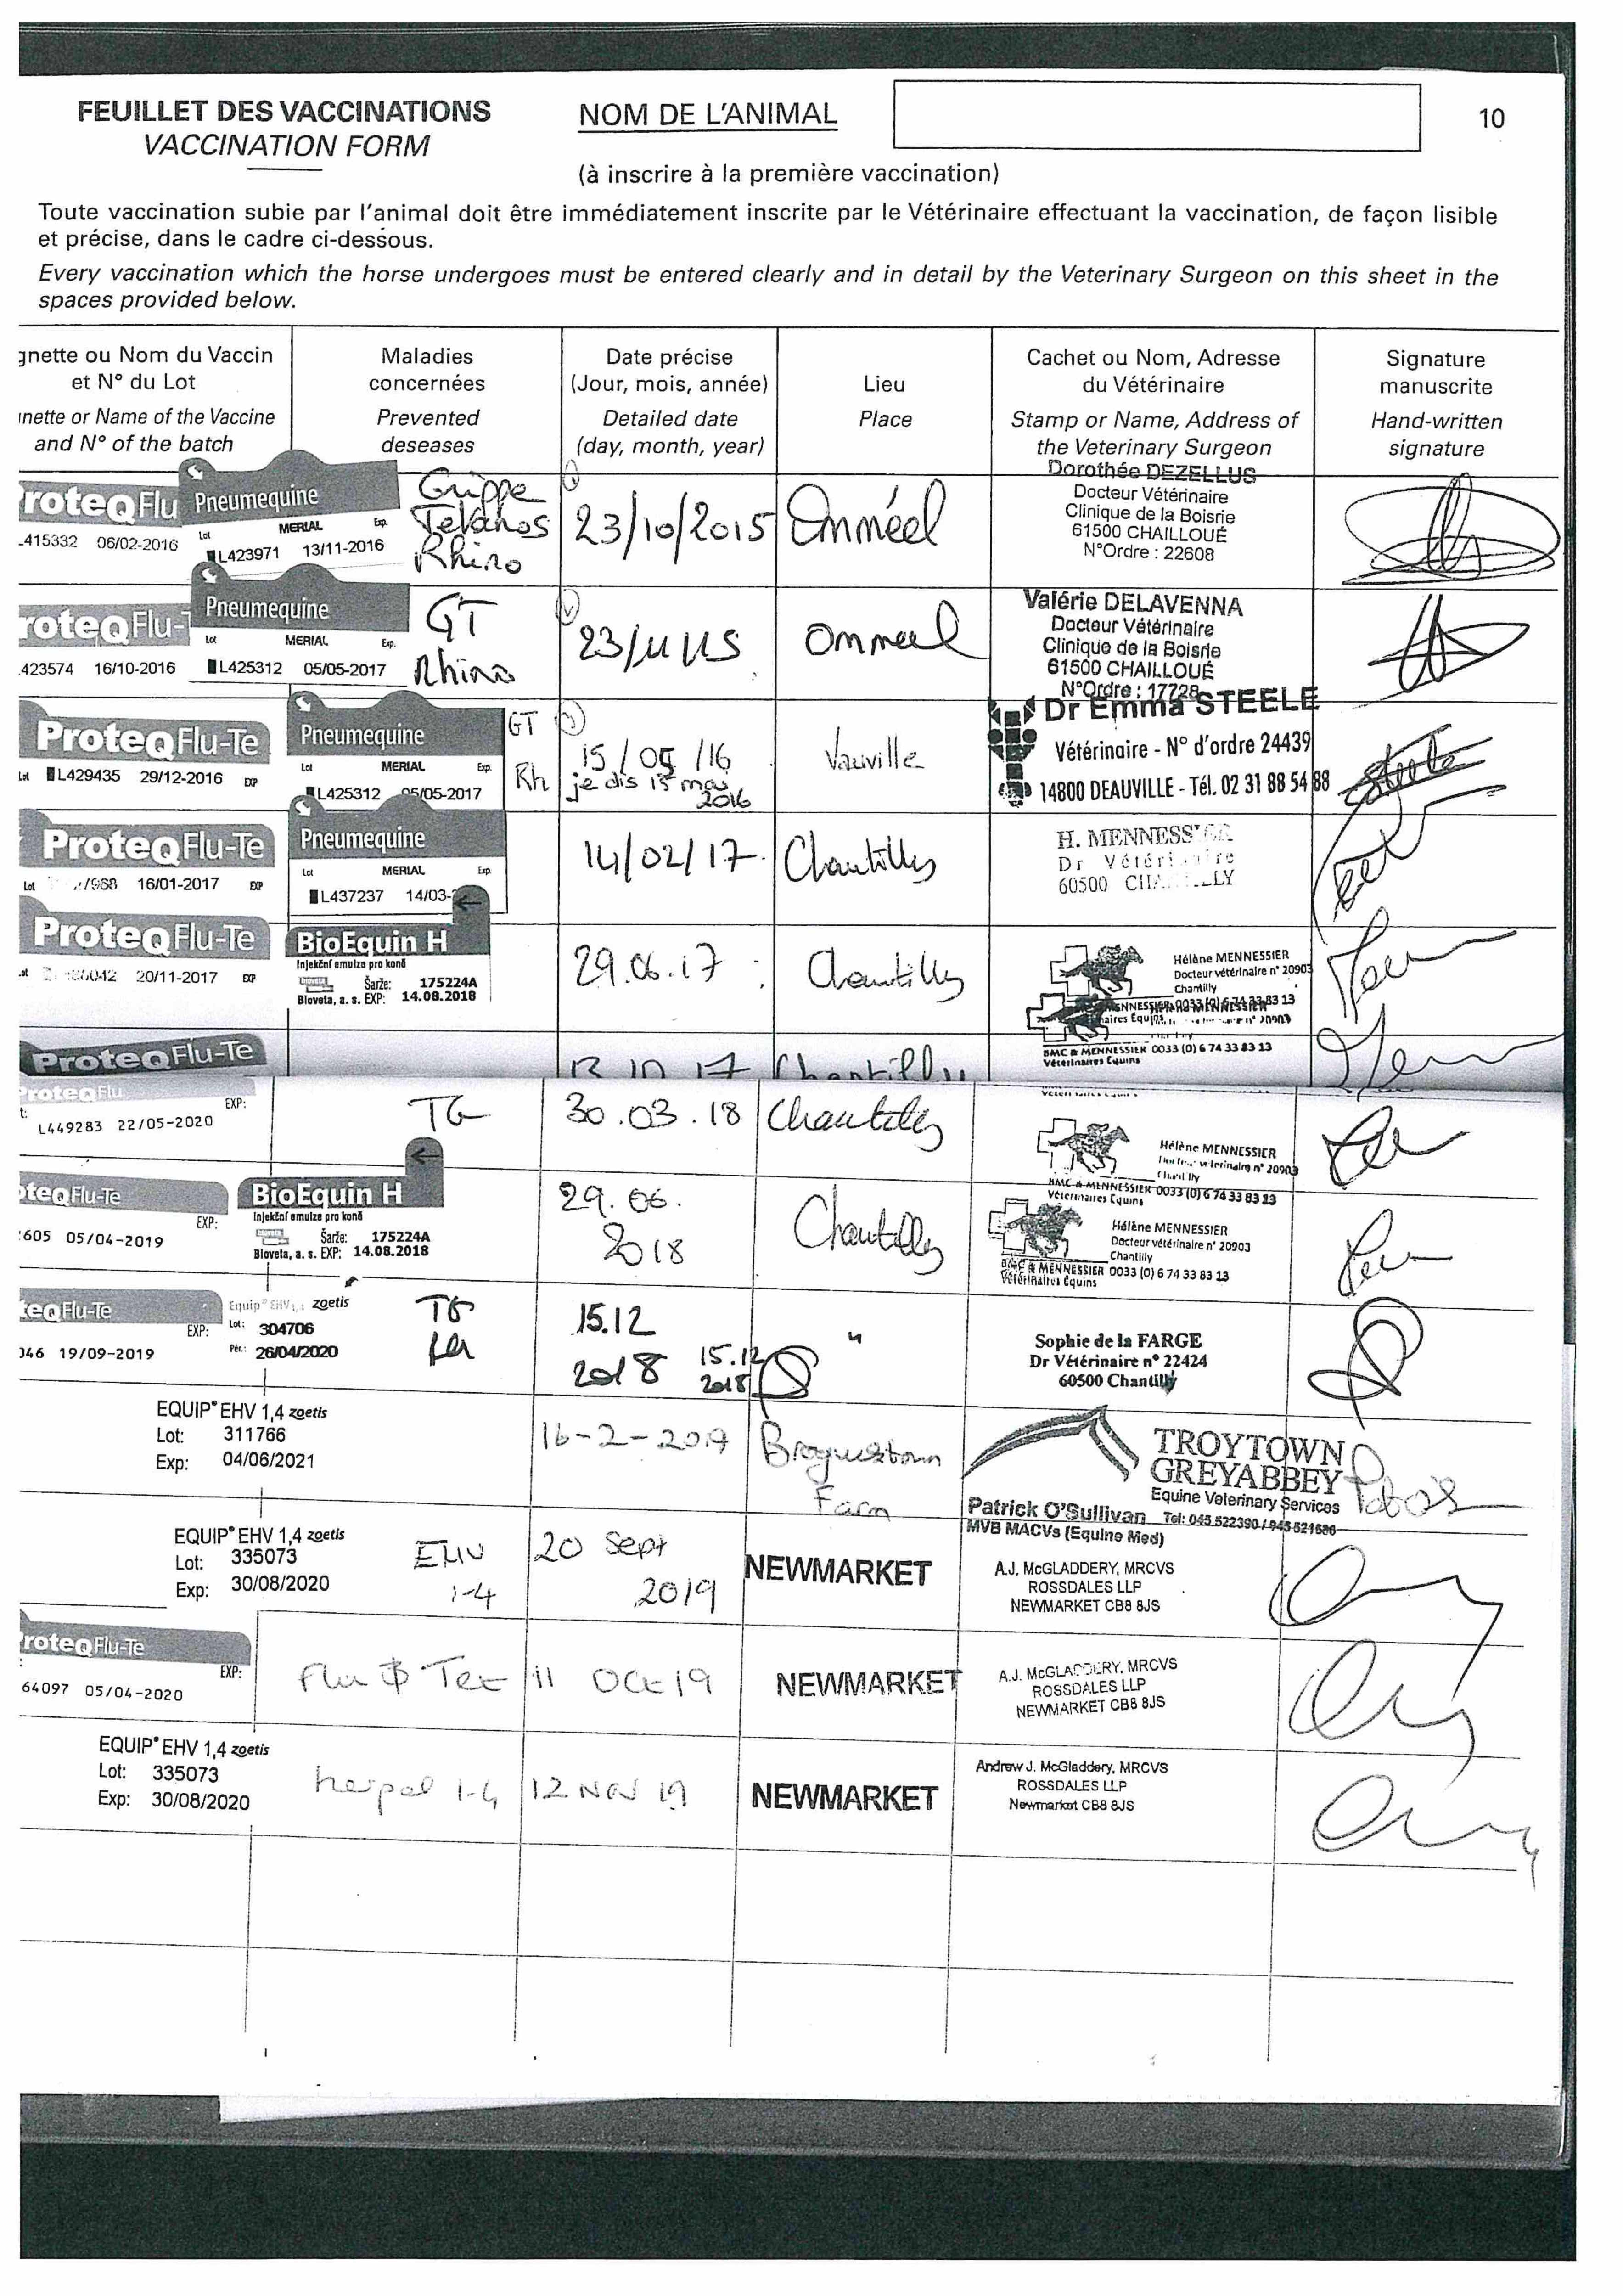 FEUILLET DES VACCINATIONS
VACCINATION FORM
NOM DE L'ANIMAL
10
(à inscrire à la première vaccination)
Toute vaccination subie par l'animal doit être immédiatement inscrite par le Vétérinaire effectuant la vaccination, de façon lisible
et précise, dans le cadre ci-dessous.
Every vaccination which the horse undergoes must be entered clearly and in detail by the Veterinary Surgeon on this sheet in the
spaces provided below.
gnette ou Nom du Vaccin
et N° du Lot
nette or Name of the Vaccine
and N° of the batch
Maladies
concernées
Prevented
deseases
Date précise
(Jour, mois, année)
Detailed date
(day, month, year)
Lieu
Place
Cachet ou Nom, Adresse
du Vétérinaire
Stamp or Name, Address of
the Veterinary Surgeon
Signature
manuscrite
Hand-written
signature
roteqFlu
415332 06/02-2016
Pneumequine
Lot MERIAL Exp.
L423971 13/11-2016
Grippe
Tetanos
Rhino
23/10/2015
Omméel
Dorothée DEZELLUS
Docteur Vétérinaire
Clinique de la Boisrie
61500 CHAILLOUÉ
N°Ordre : 22608
roteqFlu-T
423574 16/10-2016
Pneumequine
Lot MERIAL Exp.
L425312 05/05-2017
GT
Rhino
23/11/15
Ommeel
Valérie DELAVENNA
Docteur Vétérinaire
Clinique de la Boisrie
61500 CHAILLOUÉ
N°Ordre : 17728
ProteqFlu-Te
Lot L429435 29/12-2016 EXP
Pneumequine
Lot MERIAL Exp.
L425312 05/05-2017
GT
Rh
15/05/16
je dis 15 mai
2016
Vauville
Dr Emma STEELE
Vétérinaire - N° d'ordre 24439
14800 DEAUVILLE - Tél. 02 31 88 54 88
ProteqFlu-Te
Lot 16/01-2017 EXP
Pneumequine
Lot MERIAL Exp.
L437237 14/03-
14/02/17
Chantilly
H. MENNESSIER
Dr Vétérinaire
60500 CHANTILLY
ProteqFlu-Te
20/11-2017 EXP
BioEquin H
Injekční emulze pro koně
Šarže: 175224A
Bioveta, a. s. EXP: 14.08.2018
29.06.17
Chantilly
Hélène MENNESSIER
Docteur vétérinaire n° 20903
Chantilly
0033 (0) 6 74 33 83 13
ProteqFlu-Te
13 10 17
Chantilly
BMC & MENNESSIER 0033 (0) 6 74 33 83 13
Vétérinaires Équins
roteqFlu
EXP:
L449283 22/05-2020
TG
30.03.18
Chantilly
Hélène MENNESSIER
Docteur vétérinaire n° 20903
Chantilly
BMC & MENNESSIER 0033 (0) 6 74 33 83 13
Vétérinaires Équins
teqFlu-Te
EXP:
605 05/04-2019
BioEquin H
Injekční emulze pro koně
Šarže: 175224A
Bioveta, a. s. EXP: 14.08.2018
29.06.
2018
Chantilly
Hélène MENNESSIER
Docteur vétérinaire n° 20903
Chantilly
BMC & MENNESSIER 0033 (0) 6 74 33 83 13
Vétérinaires Équins
teqFlu-Te
EXP:
046 19/09-2019
Equip EHV1,4 zoetis
Lot: 304706
Pér.: 26/04/2020
TG
15.12
2018
15.12
2018
"
Sophie de la FARGE
Dr Vétérinaire n° 22424
60500 Chantilly
EQUIP® EHV 1,4 zoetis
Lot: 311766
Exp: 04/06/2021
16-2-2019
Broguestown
Farm
TROYTOWN
GREYABBEY
Equine Veterinary Services
Patrick O'Sullivan Tel: 045 522390 / 045 521686
MVB MACVs (Equine Med)
EQUIP® EHV 1,4 zoetis
Lot: 335073
Exp: 30/08/2020
EHV
1-4
20 Sept
2019
NEWMARKET
A.J. McGLADDERY, MRCVS
ROSSDALES LLP
NEWMARKET CB8 8JS
roteqFlu-Te
EXP:
64097 05/04-2020
Flu & Tet
11 Oct 19
NEWMARKET
A.J. McGLADDERY, MRCVS
ROSSDALES LLP
NEWMARKET CB8 8JS
EQUIP® EHV 1,4 zoetis
Lot: 335073
Exp: 30/08/2020
herpes 1-4
12 Nov 19
NEWMARKET
Andrew J. McGladdery, MRCVS
ROSSDALES LLP
Newmarket CB8 8JS